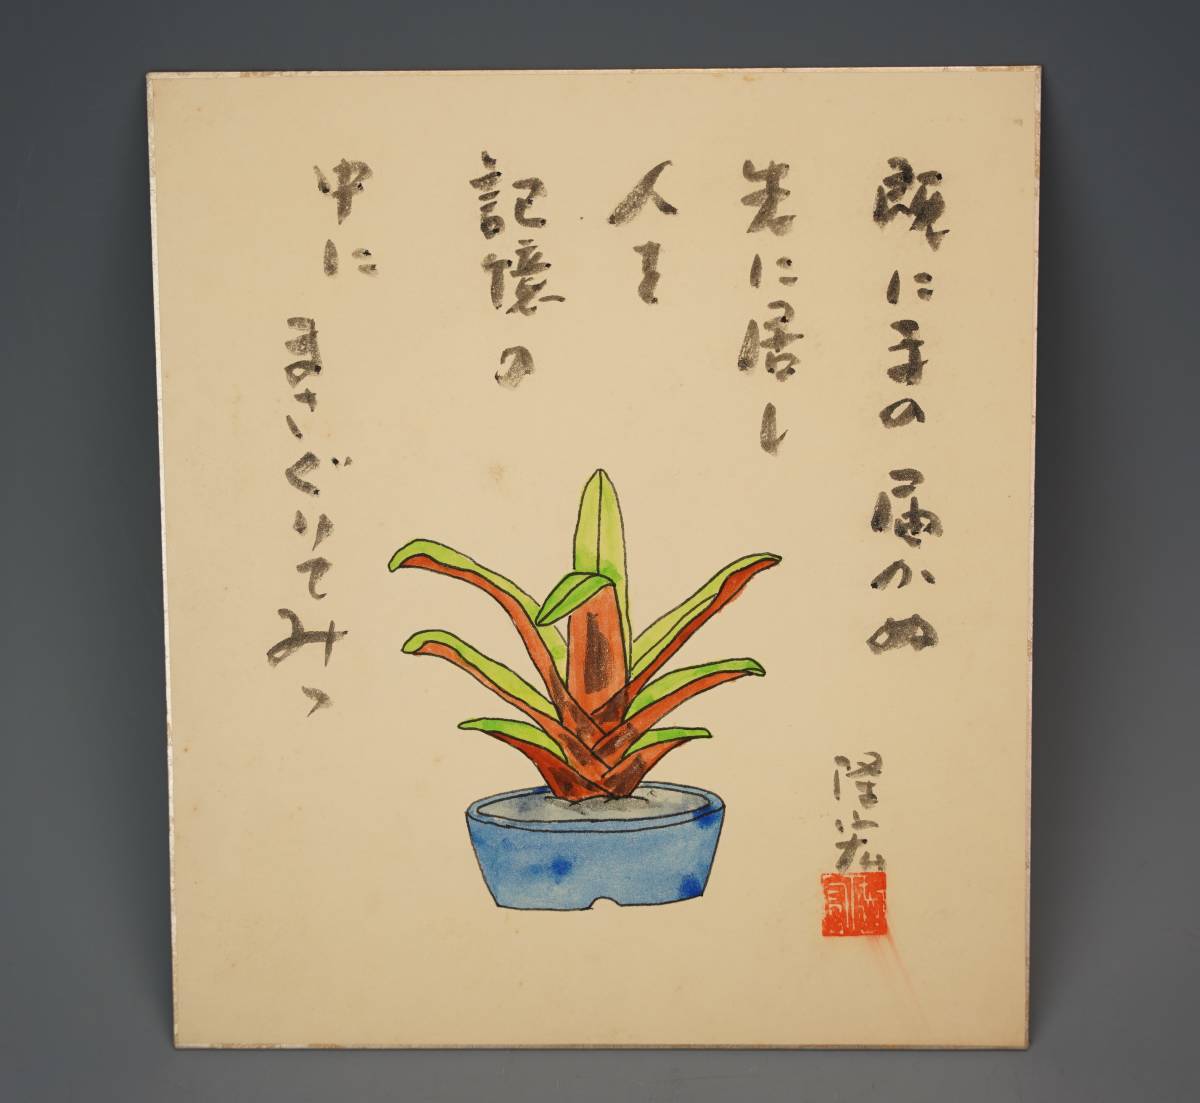 既に手の届かぬ
先に居し
人を
記憶の
中に
まさぐりてみつ
隆宏